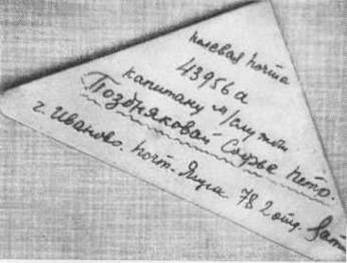 полевая почта
43956а
капитану м/служб
Поздняковой Софье Петр.
г. Иваново. почт. Ящик 78 2 отд.